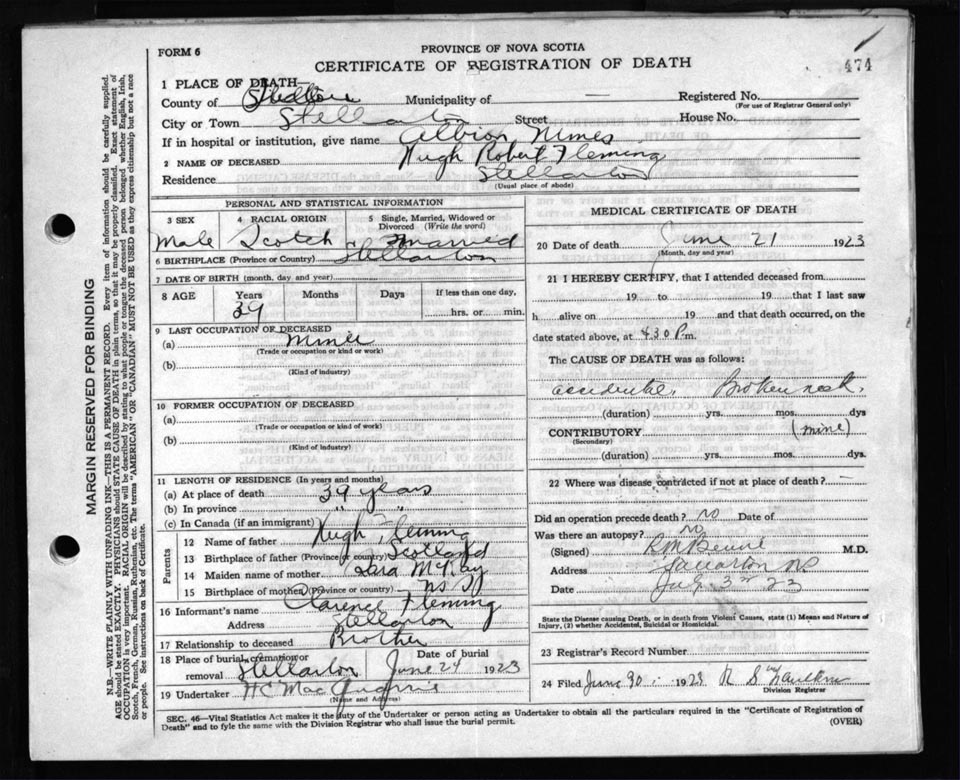 FORM 6
PROVINCE OF NOVA SCOTIA
CERTIFICATE OF REGISTRATION OF DEATH
474
1 PLACE OF DEATH—
County of Municipality of — Registered No.
(For use of Registrar General only)
City or Town Stellarton Street House No.
If in hospital or institution, give name Albion Mines
2 NAME OF DECEASED Hugh Robert Fleming
Residence Stellarton
(Usual place of abode)
PERSONAL AND STATISTICAL INFORMATION
3 SEX 4 RACIAL ORIGIN 5 Single, Married, Widowed or Divorced (Write the word)
Male Scotch Married
6 BIRTHPLACE (Province or Country) Stellarton
7 DATE OF BIRTH (month, day and year)
8 AGE Years Months Days If less than one day,
39 hrs. or min.
9 LAST OCCUPATION OF DECEASED
(a) Miner
(Trade or occupation or kind or work)
(b)
(Kind of industry)
10 FORMER OCCUPATION OF DECEASED
(a)
(Trade or occupation or kind of work)
(b)
(Kind of Industry)
11 LENGTH OF RESIDENCE (In years and months)
(a) At place of death 39 years
(b) In province " "
(c) In Canada (if an immigrant)
Parents
12 Name of father Hugh Fleming
13 Birthplace of father (Province or country) Scotland
14 Maiden name of mother McKay
15 Birthplace of mother (Province or country) NS
16 Informant's name Clarence Fleming
Address Stellarton
17 Relationship to deceased Brother
18 Place of burial, cremation or removal Stellarton Date of burial June 24 1923
19 Undertaker H C Mac
(Name and Address)
MEDICAL CERTIFICATE OF DEATH
20 Date of death June 21 1923
(Month, day and year)
21 I HEREBY CERTIFY, that I attended deceased from
19 to 19 that I last saw
h alive on 19 and that death occurred, on
date stated above, at 4.30 P.m.
The CAUSE OF DEATH was as follows:
accidental. Broken neck.
(duration) yrs. mos. dys
CONTRIBUTORY (mine)
(Secondary)
(duration) yrs. mos. dys.
22 Where was disease contracted if not at place of death? —
Did an operation precede death? no Date of
Was there an autopsy? no
(Signed) M.D.
Address Stellarton NS
Date July 3rd 23
State the Disease causing Death, or in death from Violent Causes, state (1) Means and Nature of
Injury, (2) whether Accidental, Suicidal or Homicidal.
23 Registrar's Record Number
24 Filed June 30 1923 R S
Division Registrar
SEC. 46—Vital Statistics Act makes it the duty of the Undertaker or person acting as Undertaker to obtain all the particulars required in the "Certificate of Registration of
Death" and to fyle the same with the Division Registrar who shall issue the burial permit.
(OVER)
MARGIN RESERVED FOR BINDING
N.B.—WRITE PLAINLY WITH UNFADING INK—THIS IS A PERMANENT RECORD. Every item of information should be carefully supplied.
AGE should be stated EXACTLY. PHYSICIANS should STATE CAUSE OF DEATH in plain terms, so that it may be properly classified. Exact statement of
OCCUPATION is very important. RACIAL ORIGIN will be described by stating to what people or tongue the deceased person belonged whether English, Irish,
Scotch, French, German, Russian, Ruthenian, etc. The terms "AMERICAN" OR "CANADIAN" MUST NOT BE USED as they express citizenship but not a race
or people. See instructions on back of Certificate.